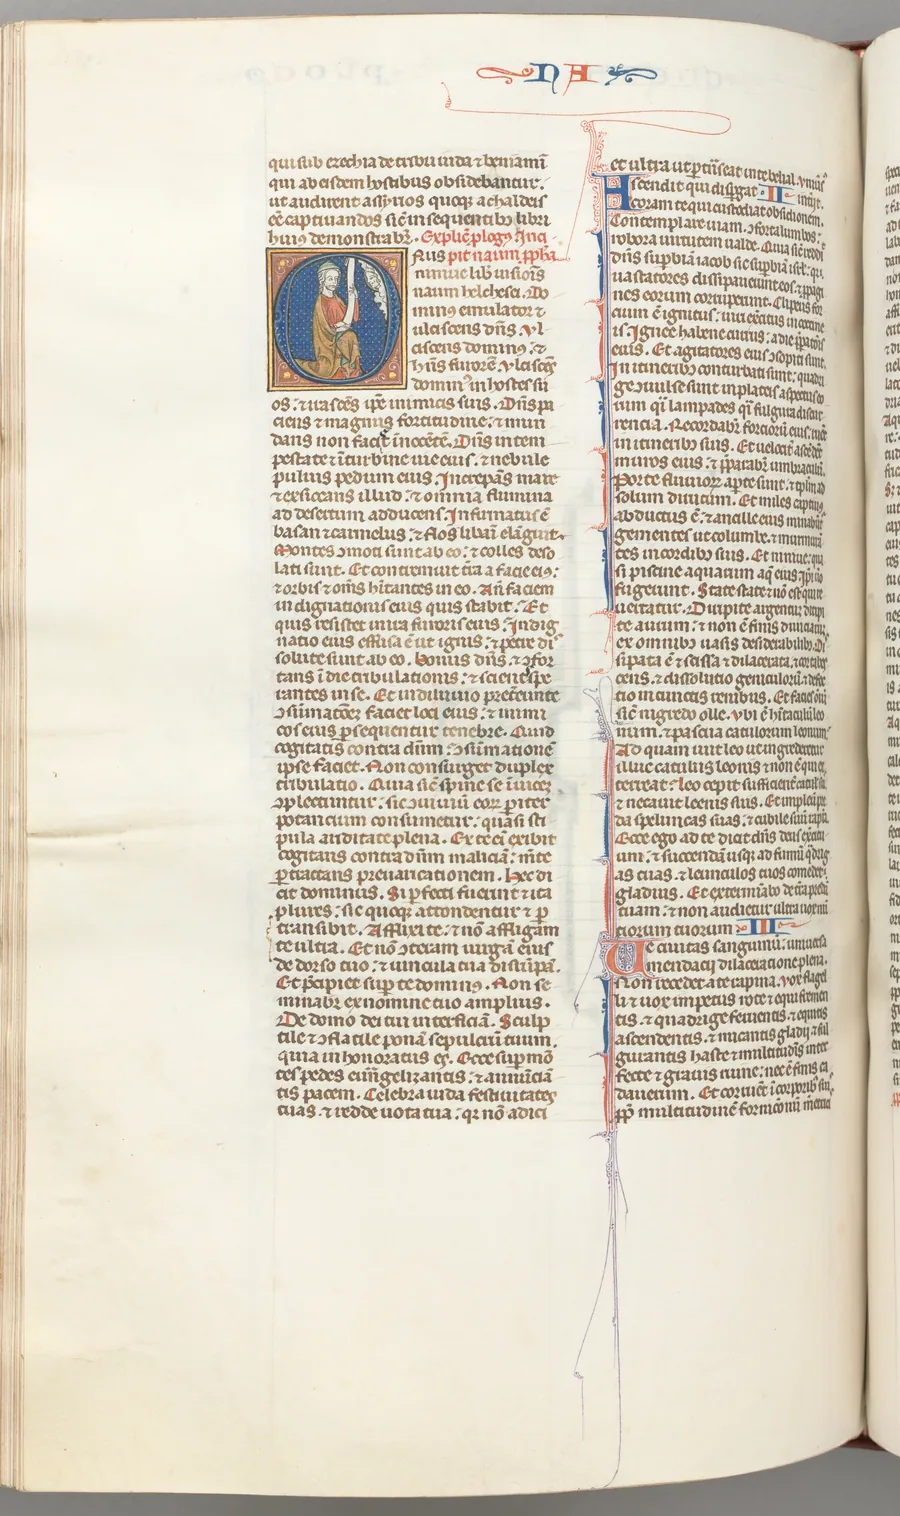 NA
qui sub ezechia de tribu iuda ⁊ beniamī
qui ab eisdem hostibus obsidebantur.
ut audirent assirios quoqꝫ a chaldeis
eē captiuandos sič in sequentibꝫ libri
huiꝰ demonstrabr̄. Explic̄ plogꝰ Inci
pit naum ꝓpha
niniue lib uisiōis
naum helchesei. Do
minꝰ emulator ⁊
ulciscens dn̄s. Vl
ciscens dominꝰ. ⁊
hn̄s furorē. Vlciscēs
dominꝰ in hostes su
os: ⁊ irascēs ip̄e inimicis suis. Dn̄s pa
ciens ⁊ magnus fortitudine: ⁊ mun
dans non faciet īnocētē. Dn̄s in tem
pestate ⁊ ī turbine uie eius. ⁊ nebule
puluis pedum eius. Increpās mare
⁊ exsiccans illud: ⁊ omnia flumina
ad desertum adducens. Infirmatus ē
basan ⁊ carmelus: ⁊ flos libani elāguit.
Montes ↄmoti sunt ab eo: ⁊ colles deso
lati sunt. Et contremuit t̄ra a facie eiꝰ:
⁊ orbis ⁊ om̄s hītantes in eo. An̄ faciem
indignationis eius quis stabit. Et
quis resistet in ira furoris eius. Indig
natio eius effusa ē ut ignis: ⁊ petre dis
solute sunt ab eo. Bonus dn̄s ⁊ ↄfor
tans ī die tribulationis: ⁊ sciens spe
rantes in se. Et in diluuio pretereunte
ↄsūmatōeꝫ faciet loci eius: ⁊ inimi
cos eius ꝑsequentur tenebre. Quid
cogitatis contra dn̄m: ↄsūmationē
ipse faciet. Non consurget duplex
tribulatio. Quia sič spine se īuiceꝫ
ↄplectuntur: sic ↄuiuiū eoꝝ pariter
potantium consumetur: quasi sti
pula ariditate plena. Ex te exibit
cogitans contra dn̄m maliciā: mēte
ꝑtractans preuaricationem. Hec di
cit dominus. Si perfecti fuerint ⁊ ita
plures: sic quoqꝫ attondentur ⁊ ꝑ
transibit. Afflixi te: ⁊ nō affligam
te ultra. Et nc̄ ↄteram uirgā eius
de dorso tuo: ⁊ uincula tua disrūpā.
Et p̄cipiet sup te dominꝰ. Non se
minabr̄ ex nomine tuo amplius.
De domo dei tui interficiā. Sculp
tile ⁊ ↄflatile ponā sepulcrū tuum.
quia inhonoratus es. Ecce sup mō
tes pedes euāgelizantis: ⁊ annūciā
tis pacem. Celebra iuda festiuitates
tuas. ⁊ redde uota tua: qꝛ nō adici
et ultra ut ꝑtrāseat in te belial. Vniūs
II
Ascendit qui disꝑgat interiit.
coram te qui custodiat obsidionem.
Contemplare uiam. ↄforta lumbos:
robora uirtutem ualde. Quia sič reddi
dn̄s supbiā iacob sič supbiā isrl: qꝛ
uastatores dissipauerunt eos: ⁊ ꝓpagi
nes eorum corruperunt. Clipeus for
cium eiꝰ ignitus: uiri exercitus in coccine
is. Igne habene currus: a die p̄patiōis
euis. Et agitatores eius ↄsopiti sunt.
In itineribꝫ conturbati sunt: quadri
ge ↄllise sunt in plateis aspectus eo
rum q̄i lampades q̄i fulgura discur
rencia. Recordabr̄ forciorū eius: ruēt
in itineribꝫ suis. Et uelociter ascēdēt
muros eius: ⁊ p̄parabr̄ umbraculū.
Porte fluuioꝝ aperte sunt: ⁊ templū ad
solum dirutum. Et miles captiuꝰ
abductus ē: ⁊ ancille eius minabātur
gementes ut columbe: ⁊ murmurā
tes in cordibꝫ suis. Et niniue: qua
si piscine aquarum aq̄ eius: ip̄i ūo
fugerunt. State state ⁊ nō est qui re
uertatur. Diripite argentum diripi
te aurum: ⁊ non ē finis diuiciarū
ex omnibꝫ uasis desiderabilibꝫ. Dis
sipata ē ⁊ scissa ⁊ dilacerata: ⁊ cor tabes
cens: ⁊ dissolutio geniculorū: ⁊ defec
tio in cunctis renibus. Et facies oīm
sič nigredo olle. Vbi ē hītaculū leo
num: ⁊ pascua catulorum leonum:
Ad quam iuit leo ut ingrederetur
illuc catulus leonis ⁊ non ē qui ex
terreat: leo cepit sufficienter catulis suis.
⁊ necauit leenis suis. Et impleuit p̄
da speluncas suas: ⁊ cubile suū rapīa.
Ecce ego ad te dicit dn̄s deus exerci
tuum: ⁊ succendā usqꝫ ad fumū q̄drig
as tuas: ⁊ leunculos tuos comedet
gladius. Et exterminabo de t̄ra predā
tuam: ⁊ non audietur ultra uox nū
tiorum tuorum III
Ve ciuitas sanguinū: uniuersa
mendacij dilaceratione plena.
Non recedet a te rapina. Vox flagel
li ⁊ uox impetus rote ⁊ equi frementis
tis. ⁊ quadrige feruentis. ⁊ equitis
ascendentis. ⁊ micantis gladij ⁊ ful
gurantis haste ⁊ multitudīs inter
fecte ⁊ grauis ruine: nec ē finis ca
dauerum. Et corruēt ī corporibꝫ suis.
ꝓp̄ multitudinē fornicōnū meretricis